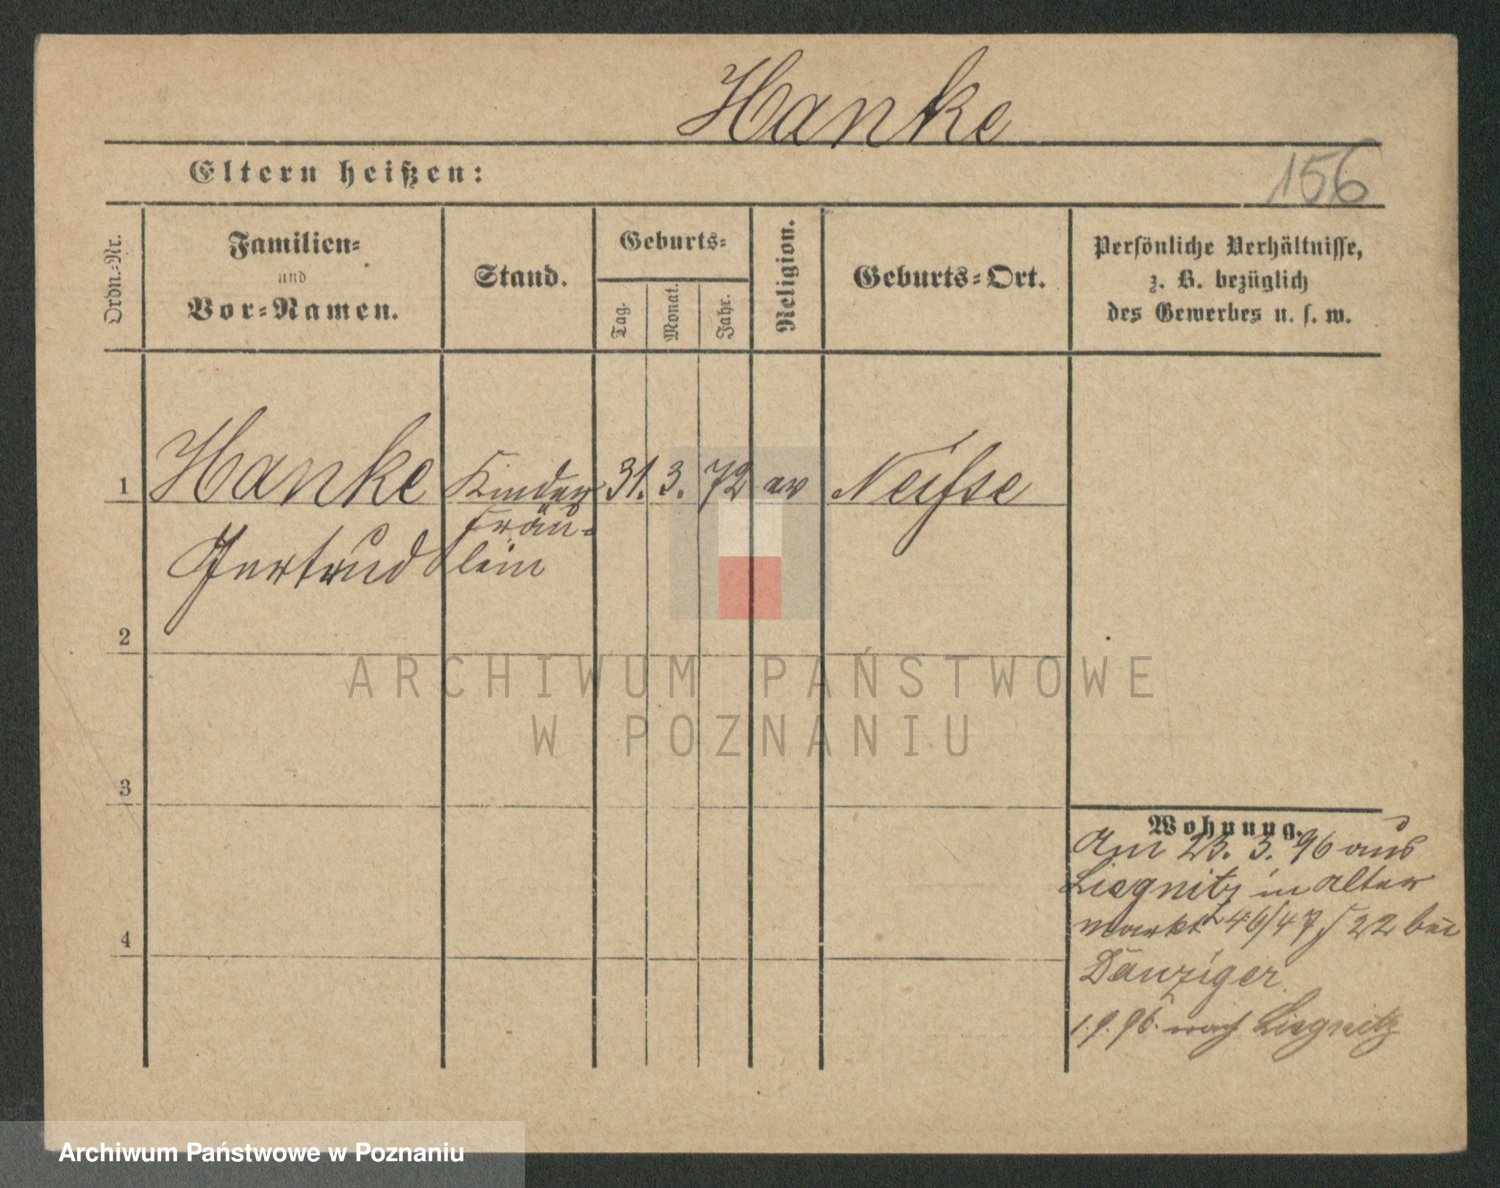 Hanke
Eltern heißen:
156
Ordn.-Nr.
Familien-
und
Vor-Namen.
Stand.
Geburts-
Tag.
Monat.
Jahr.
Religion.
Geburts-Ort.
Persönliche Verhältnisse,
z. B. bezüglich
des Gewerbes u. s. w.
1
Hanke
Gertrud
Kinder
fräu-
lein
31. 3. 72
ev
Neisse
2
ARCHIWUM PAŃSTWOWE
W POZNANIU
3
4
Wohnung.
Am 23. 3. 96 aus
Liegnitz in Alter
markt 46/47 22 bei
Danziger
1.9.96. nach Liegnitz
Archiwum Państwowe w Poznaniu